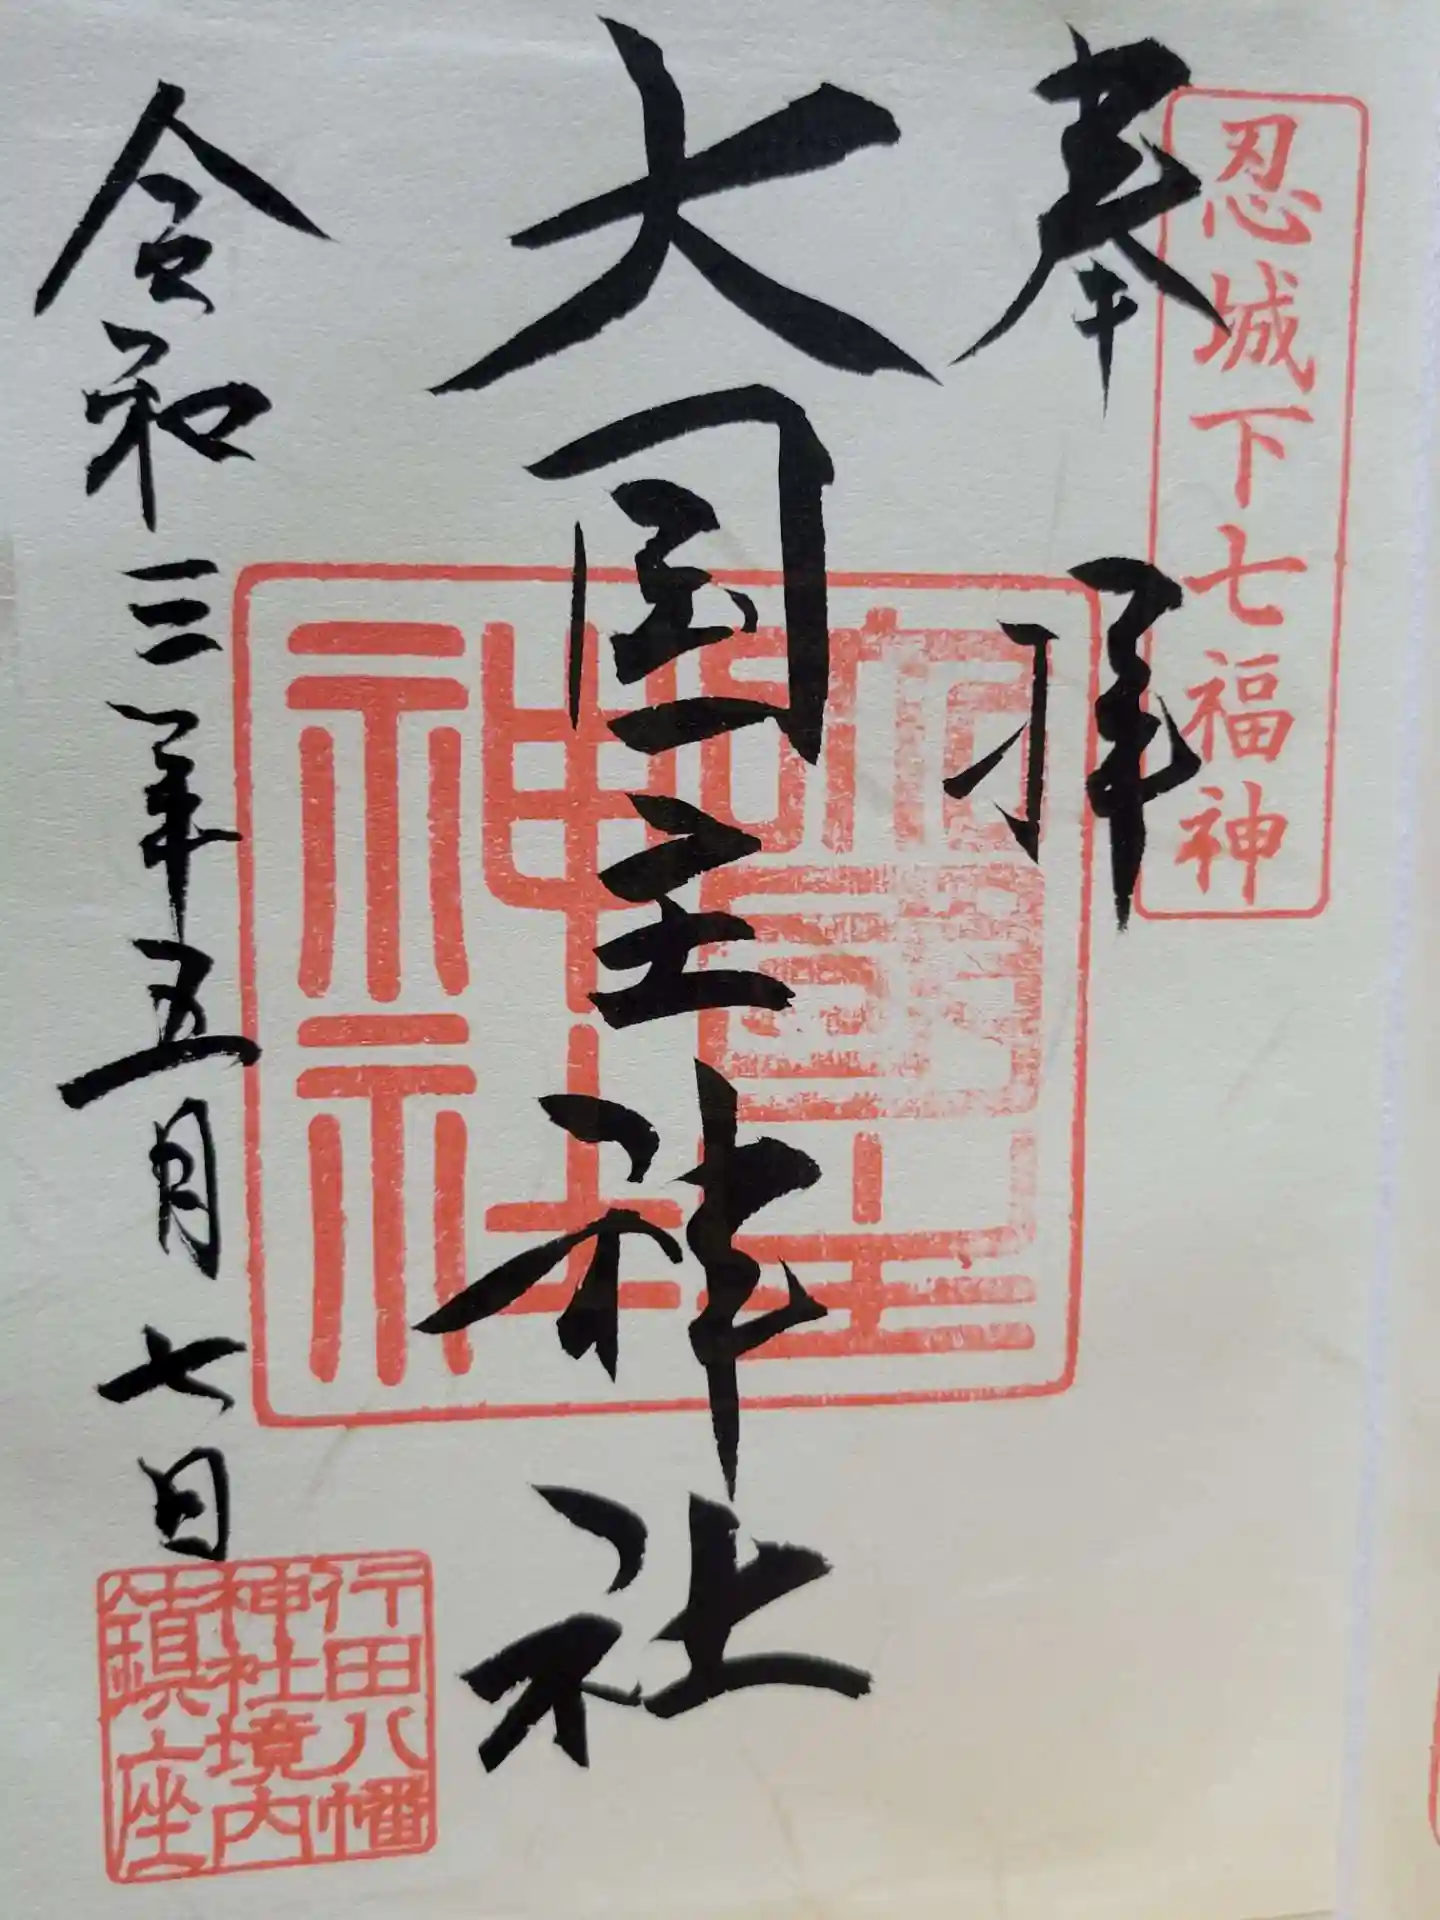 忍城下七福神
奉拝
大国主神社
大國主
神社
令和三年五月七日
行田八幡
神社境内
鎮座